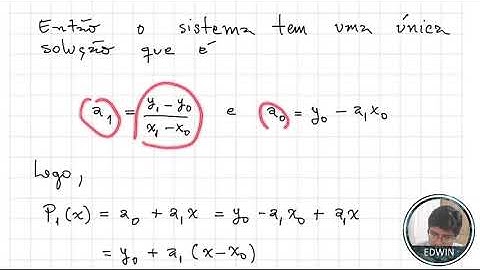 Então o sistema tem uma única
solução que é
a₁ = (y₁ - y₀)/(x₁ - x₀) e a₀ = y₀ - a₁x₀
Logo,
P₁(x) = a₀ + a₁x = y₀ - a₁x₀ + a₁x
= y₀ + a₁(x-x₀)
EDWIN